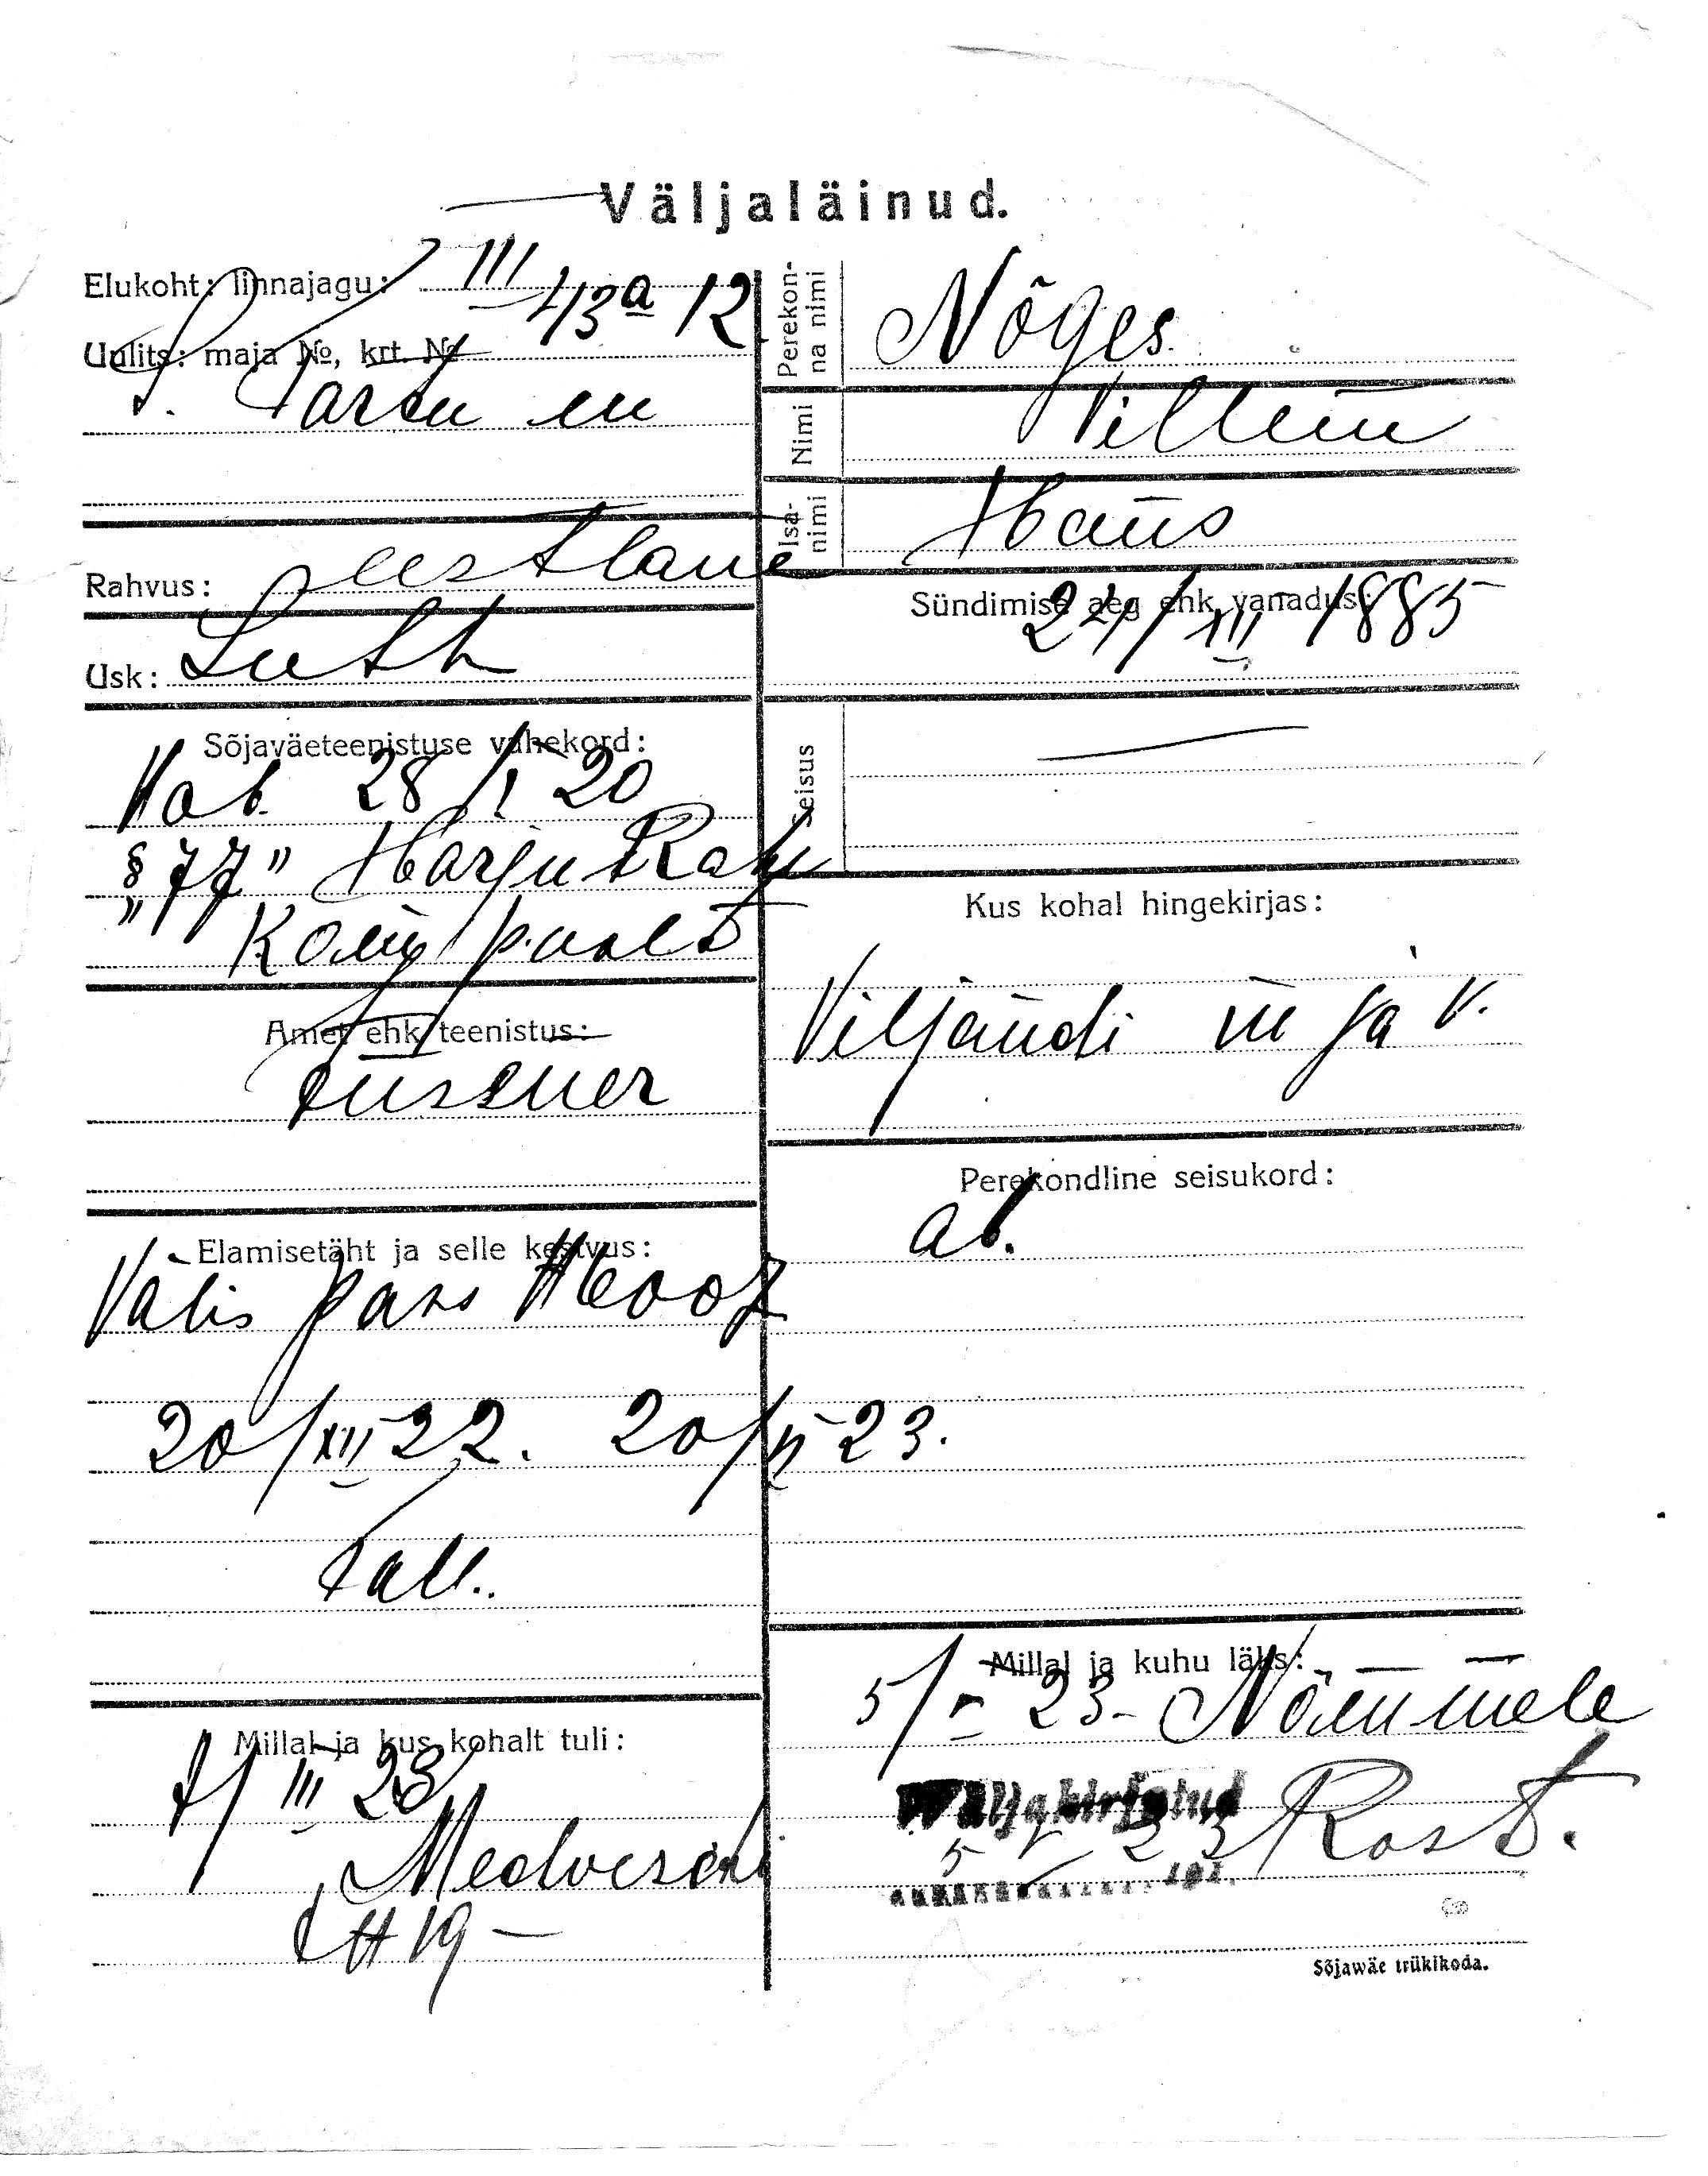 Väljaläinud.
Elukoht: linnajagu: III
43a 12
Uulits: maja №, krt. №
S. Tartu m
Rahvus: eestlane
Usk: Luth
Sõjaväeteenistuse vahekord:
Vab. 28/I 20
§ „77" Harju Rahv
Kom poolt
Amet ehk teenistus:
Elamisetäht ja selle kestvus:
Välis pass
20/XII 22. 20/VI 23.
Tall.
Millal ja kus kohalt tuli:
III 23
№ 19 –
Perekonna nimi
Nõges
Nimi
Villem
Isanimi
Hans
Sündimise aeg ehk vanadus:
24/XII 1885
Seisus
Kus kohal hingekirjas:
Viljandi m ja v.
Perekondline seisukord:
ab.
Millal ja kuhu läks:
5/V 23 – Nõmmele
Wäljakirjutud
5 V 23 Rost.
Sõjawäe trükikoda.